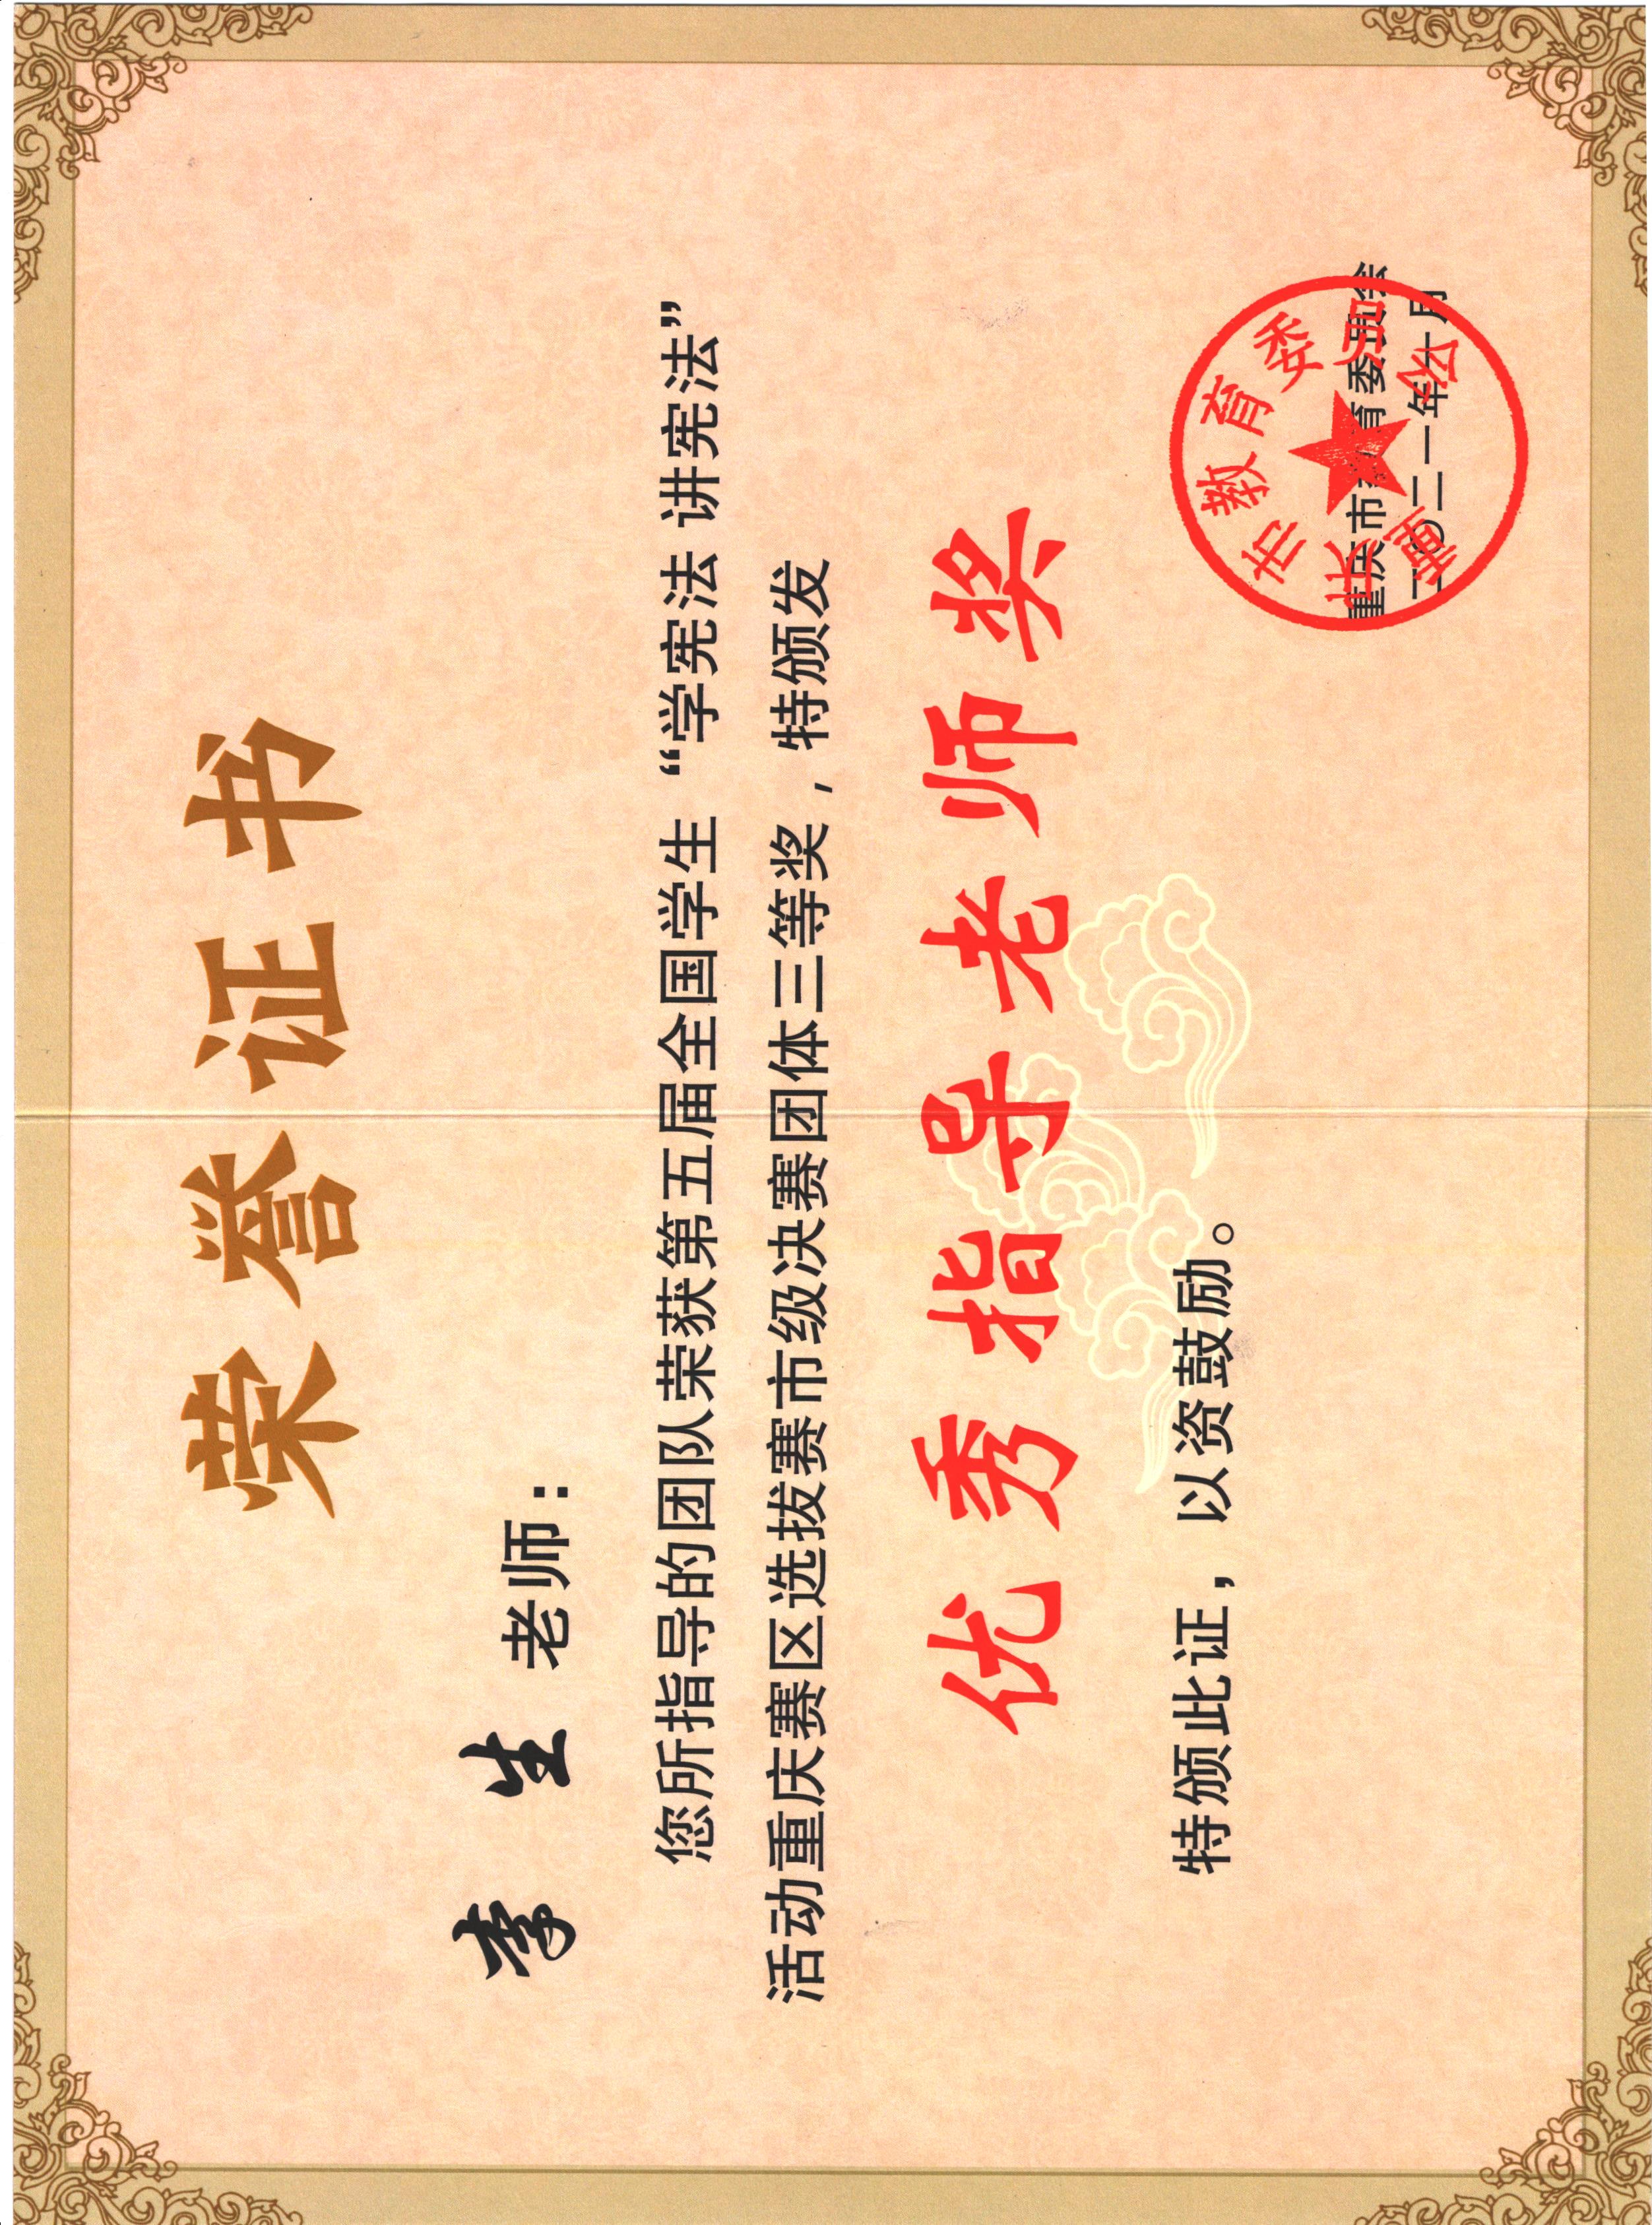 荣誉证书
李 生 老师：
您所指导的团队荣获第五届全国学生“学宪法 讲宪法”
活动重庆赛区选拔赛市级决赛团体三等奖，特颁发
优秀指导老师奖
特颁此证，以资鼓励。
重庆市教育委员会
二〇二一年十月
重庆市教育委员会